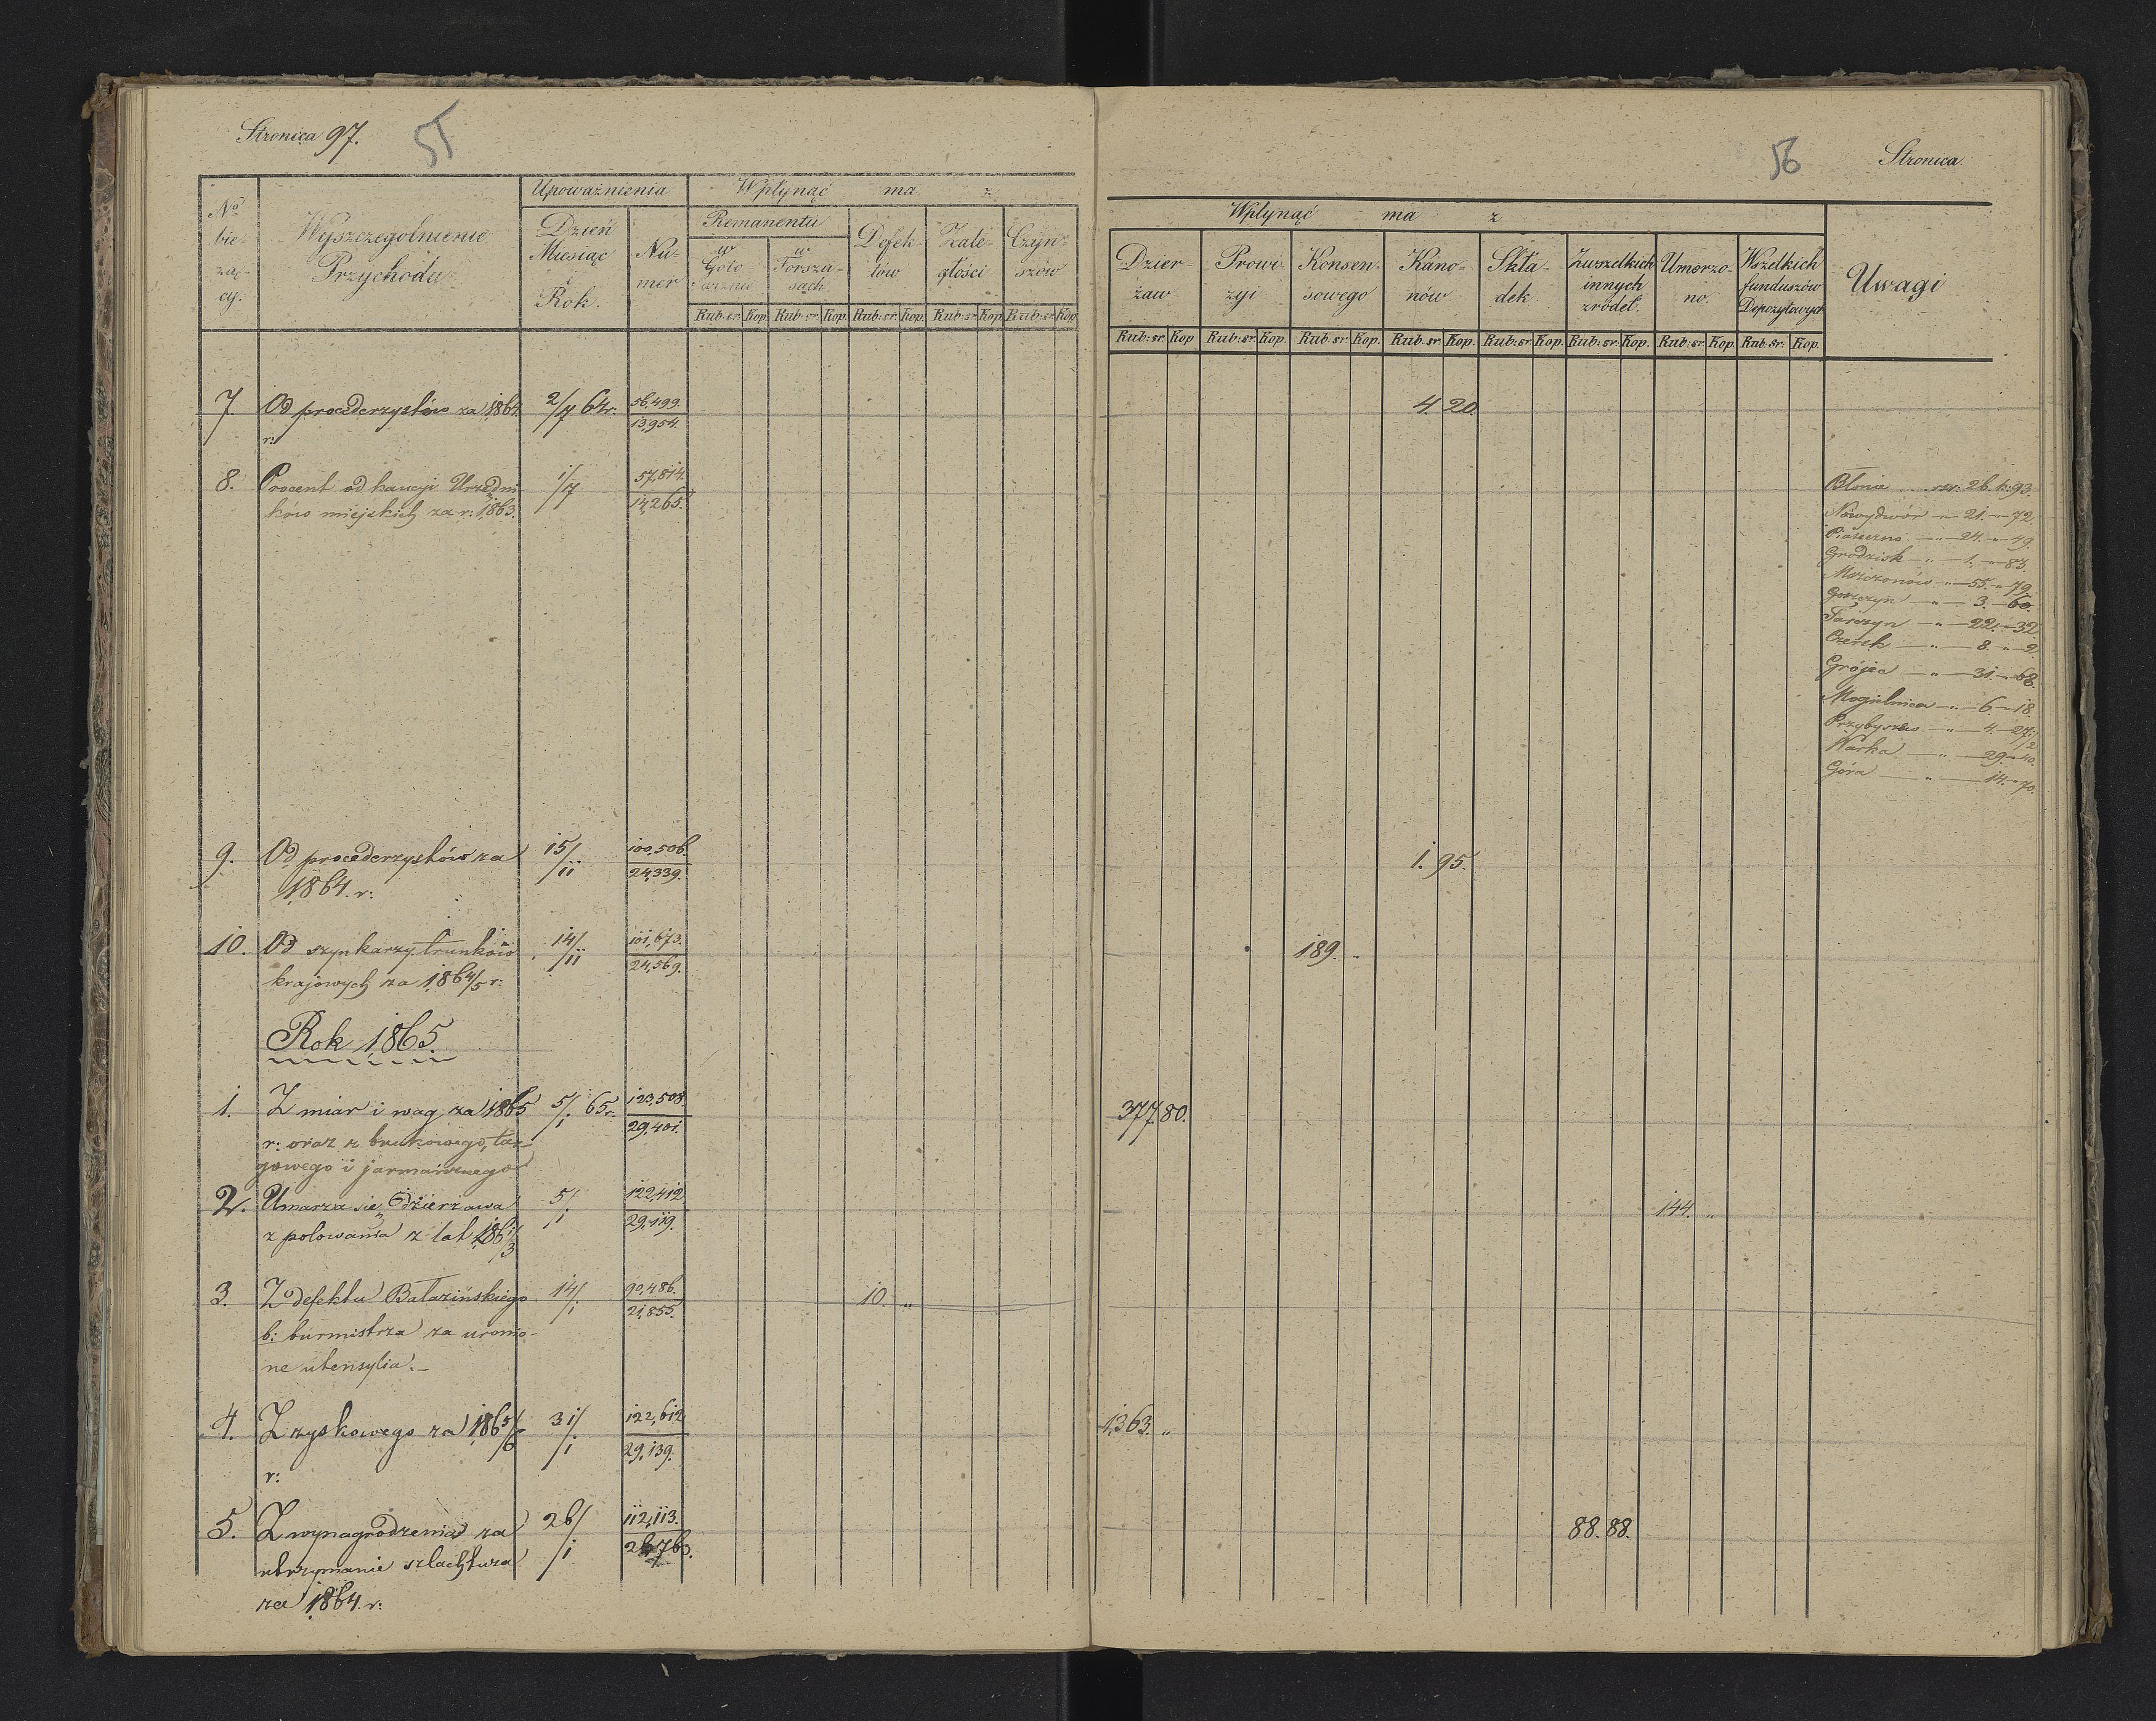 Stronica 97.
55
No bieżący.
Wyszczególnienie Przychodu
Upoważnienia
Dzień Miesiąc i Rok.
Numer
Wpłynąć ma z
Remanentu
w Gotowiznie
w Forszusach
Defektów
Zaległości
Czynszów
Rub: sr. Kop. Rub: sr. Kop. Rub: sr. Kop. Rub: sr. Kop. Rub: sr. Kop.
7. Od procederzystów za 1864 2/7 64 r. 56,499.
r: 13,954.
8. Procent od kaucyi Urzędni 1/7 57,814.
ków miejskich za r: 1863. 14,265.
9. Od procederzystów za 15/11 100,506.
1864. r: 24,339.
10. Od szynkarzy trunków 14/11 101,673.
krajowych za 1864/5 r: 24,569.
Rok 1865
1. Z miar i wag za 1865 5/1 65 r. 123,508.
r: oraz z brukowego, tar- 29,401.
gowego i jarmarcznego
2. Umarza się Dzierżawa 5/1 122,412
z polowania z lat 1861/3 29,119.
3. Z defektu Bałazińskiego 14/1 90,486. 10. „
b: burmistrza za uronio- 21,855.
ne utensylia.
4. Z zyskowego za 1865/6 31/1 122,612
r: 29,139.
5. Z wynagrodzenia za 26/1 112,113.
utrzymanie szlachtuza
za 1864. r:
56
Stronica.
Wpłynąć ma z
Dzierżaw
Prowizyi
Konsensowego
Kanonów
Składek
Zwszelkich innych źródeł.
Umorzono.
Wszelkich funduszów Depozytowych
Uwagi
Rub: sr. Kop. Rub: sr. Kop. Rub: sr. Kop. Rub: sr. Kop. Rub: sr. Kop. Rub: sr. Kop. Rub: sr. Kop. Rub: sr. Kop.
4. 20.
Błonie rsr: 26. k: 93.
Nowydwór — 21. — 72.
Piaseczno — „ — 24. „ 49.
Grodzisk — „ — 1. „ 83.
Mszczonów — „ — 55. „ 79.
Goszczyn — „ — 3. — 60.
Tarczyn — „ — 22. „ 32.
Czersk — „ — 8. „ 2
Grójec — „ — 31. „ 68.
Mogielnica — „ — 6 „ 18.
Przybyszew — „ — 4. — 27 1/2
Warka — „ — 29. „ 40.
Góra — „ — 14. „ 70.
1. 95.
189. „
377. 80.
144. „
1,363. „
88. 88.